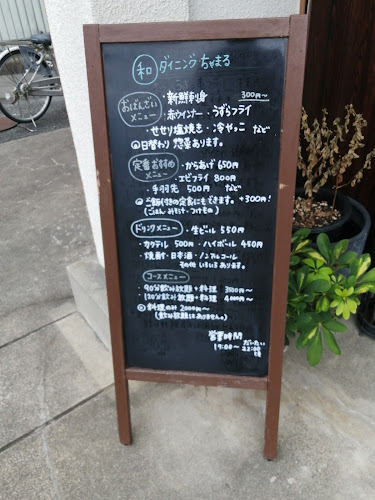 和 ダイニング ちゃまる
おばんざいメニュー
・新鮮刺身 300円〜
・赤ウインナー ・うずらフライ
・せせり塩焼き ・冷やっこ など
◎日替わり 惣菜あります。
定番おすすめメニュー
・からあげ 650円
・エビフライ 800円
・手羽先 500円 など
◎ご飯付きの定食にもできます。+300円!
(ごはん みそ汁・つけもの)
ドリンクメニュー ・生ビール 550円
・カクテル 500円 ・ハイボール 450円
・焼酎・日本酒・ノンアルコール
その他 いろいろ あります。
コースメニュー
・90分飲み放題+料理 3500円〜
・120分飲み放題+料理 4000円〜
◎料理のみ 2000円〜
(飲み放題はありません。)
営業時間
だいたい
19:00〜22:00頃